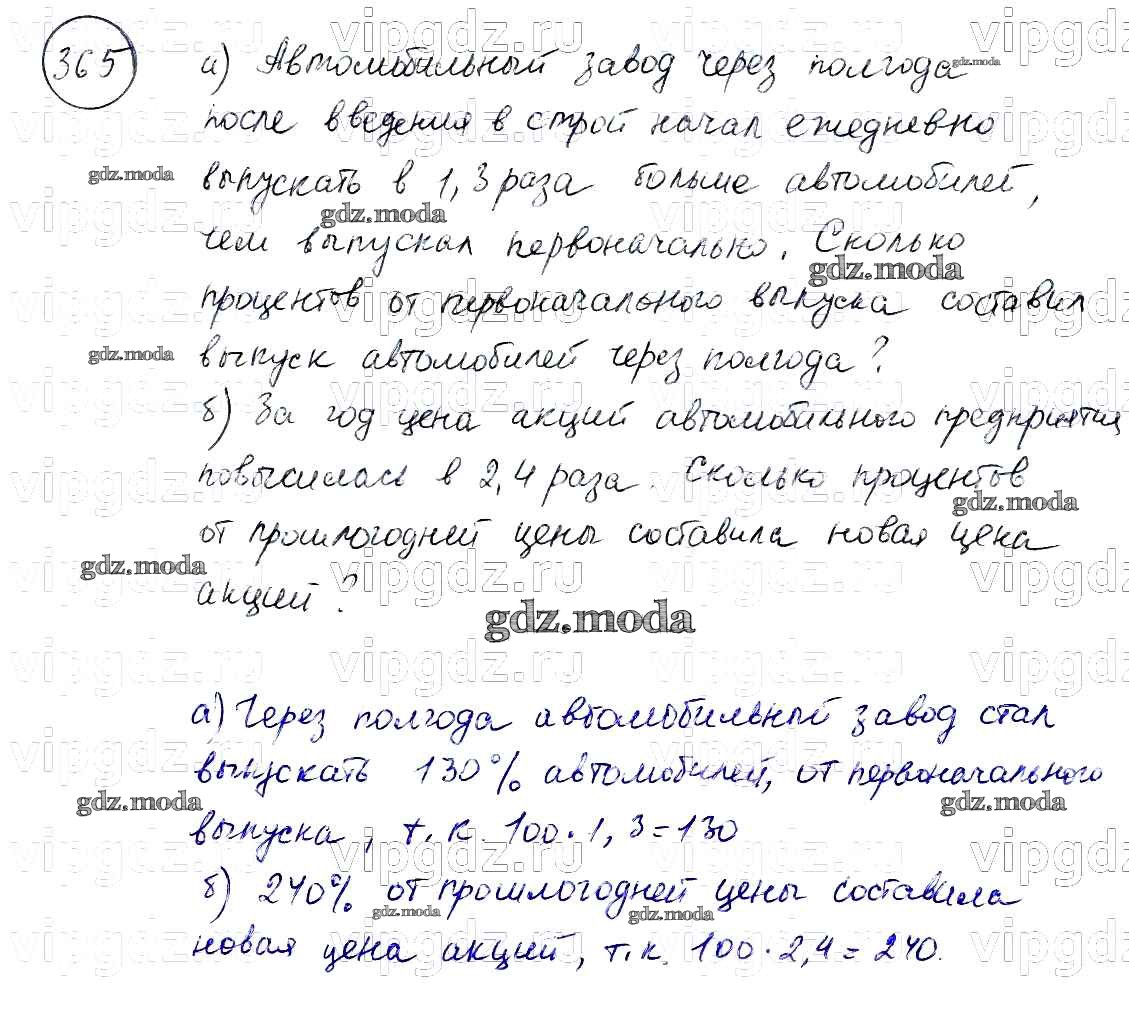 365
а) Автомобильный завод через полгода
после введения в строй начал ежедневно
выпускать в 1,3 раза больше автомобилей,
чем выпускал первоначально. Сколько
процентов от первоначального выпуска составил
выпуск автомобилей через полгода?
б) За год цена акций автомобильного предприятия
повысилась в 2,4 раза. Сколько процентов
от прошлогодней цены составила новая цена
акций?
gdz.moda
а) Через полгода автомобильный завод стал
выпускать 130% автомобилей, от первоначального
выпуска, т.к. 100·1,3=130
б) 240% от прошлогодней цены составила
новая цена акций, т.к. 100·2,4=240.
vipgdz.ru